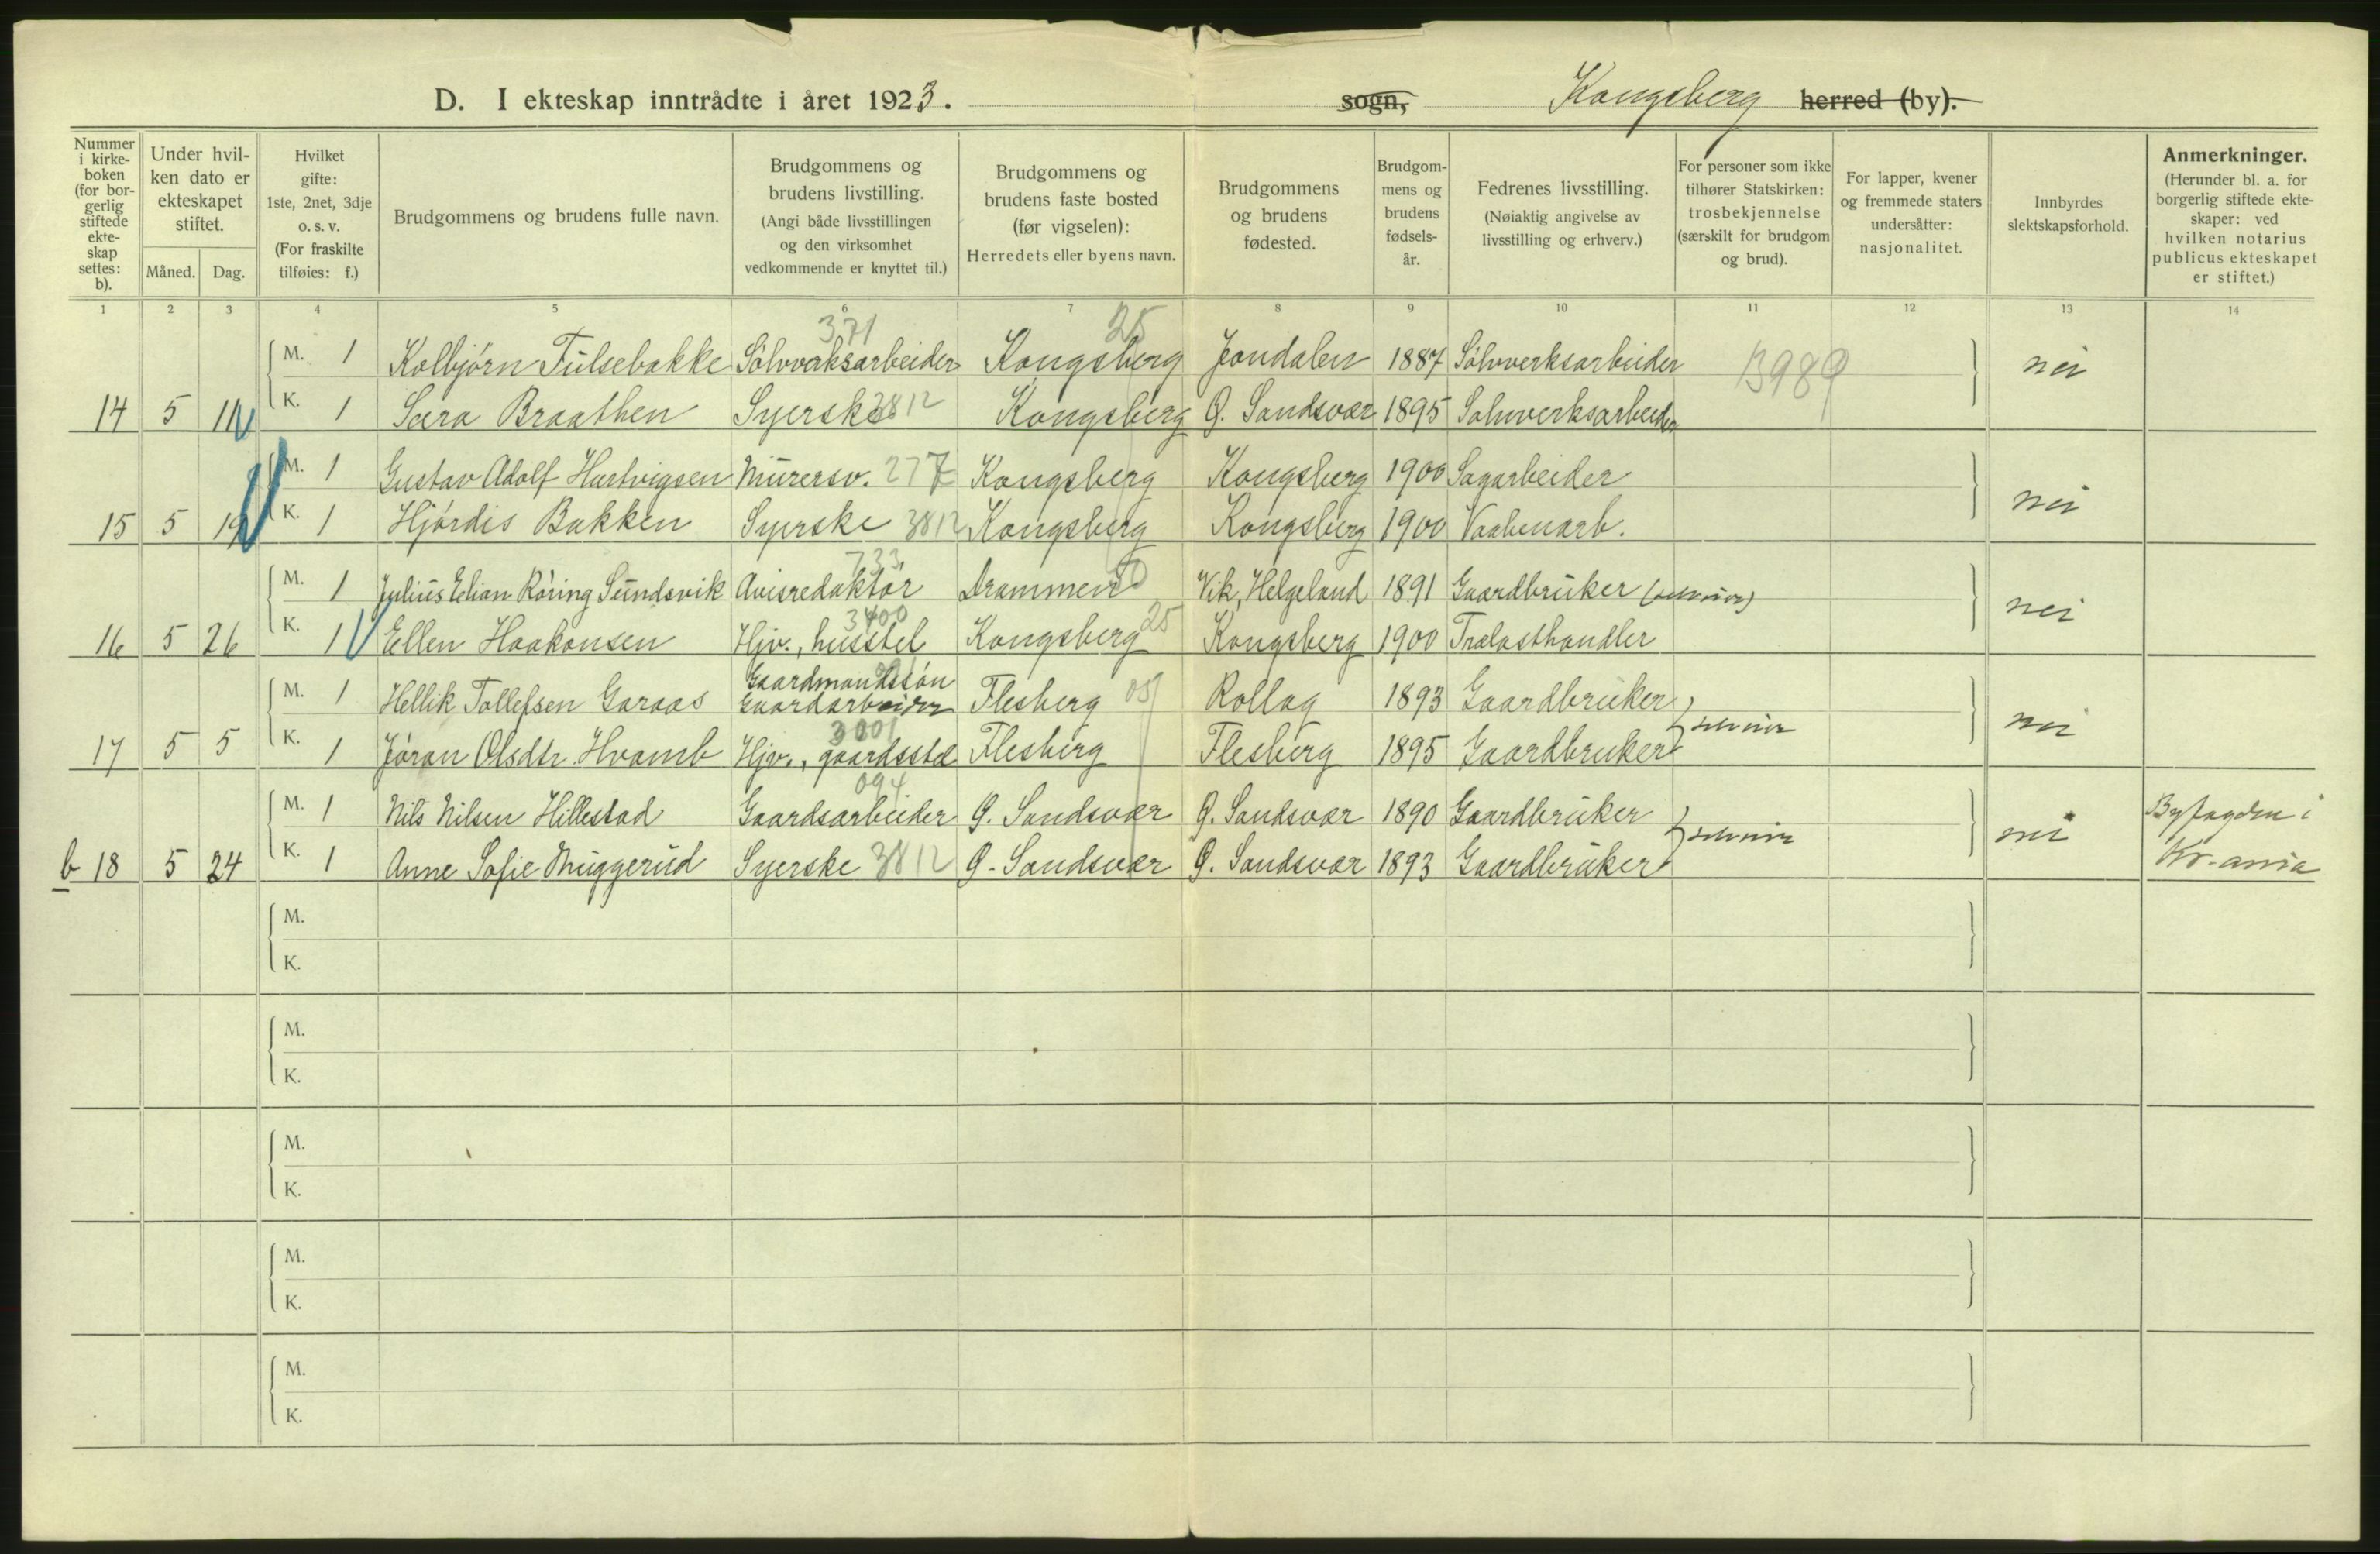 D. I ekteskap inntrådte i året 1923. sogn, Kongsberg herred (by).
Nummer i kirke-boken (for bor-gerlig stiftede ekte-skap settes: b).
Under hvil-ken dato er ekteskapet stiftet.
Måned. Dag.
Hvilket gifte: 1ste, 2net, 3dje o. s. v. (For fraskilte tilføies: f.)
Brudgommens og brudens fulle navn.
Brudgommens og brudens livstilling. (Angi både livsstillingen og den virksomhet vedkommende er knyttet til.)
Brudgommens og brudens faste bosted (før vigselen): Herredets eller byens navn.
Brudgommens og brudens fødested.
Brudgom-mens og brudens fødsels-år.
Fedrenes livsstilling. (Nøiaktig angivelse av livsstilling og erhverv.)
For personer som ikke tilhører Statskirken: trosbekjennelse (særskilt for brudgom og brud).
For lapper, kvener og fremmede staters undersåtter: nasjonalitet.
Innbyrdes slektskapsforhold.
Anmerkninger. (Herunder bl. a. for borgerlig stiftede ekte-skaper: ved hvilken notarius publicus ekteskapet er stiftet.)
1 2 3 4 5 6 7 8 9 10 11 12 13 14
371 25
M. 1 Kolbjørn Tulsebakke Sølvverksarbeider Kongsberg Jondalen 1887 Sølvverksarbeider B989 nei
14 5 11 K. 1 Sara Braathen Syerske 3812 Kongsberg Ø. Sandsvær 1895 Sølvverksarbeider
M. 1 Gustav Adolf Hartvigsen Murersv. 277 Kongsberg Kongsberg 1900 Sagarbeider nei
15 5 19 K. 1 Hjørdis Bakken Syerske 3812 Kongsberg Kongsberg 1900 Vaabenarb.
733
M. 1 Julius Elian Røring Sundsvik Avisredaktør Drammen Vik, Helgeland 1891 Gaardbruker nei
3400 25
16 5 26 K. 1 Ellen Haakonsen Hjv., husstel Kongsberg Kongsberg 1900 Trælasthandler
Gaardmandssøn
M. 1 Hellik Tollefsen Garaas Gaardarbeider Flesberg 051 Rollag 1893 Gaardbruker nei
3001
17 5 5 K. 1 Jøran Olsdtr Hvamb Hjv., gaardsstel Flesberg Flesberg 1895 Gaardbruker
094
M. 1 Nils Nilsen Hillestad Gaardsarbeider Ø. Sandsvær Ø. Sandsvær 1890 Gaardbruker nei Byfogden i
b 18 5 24 K. 1 Anne Sofie Muggerud Syerske 3812 Ø. Sandsvær Ø. Sandsvær 1893 Gaardbruker Kr.ania
M.
K.
M.
K.
M.
K.
M.
K.
M.
K.